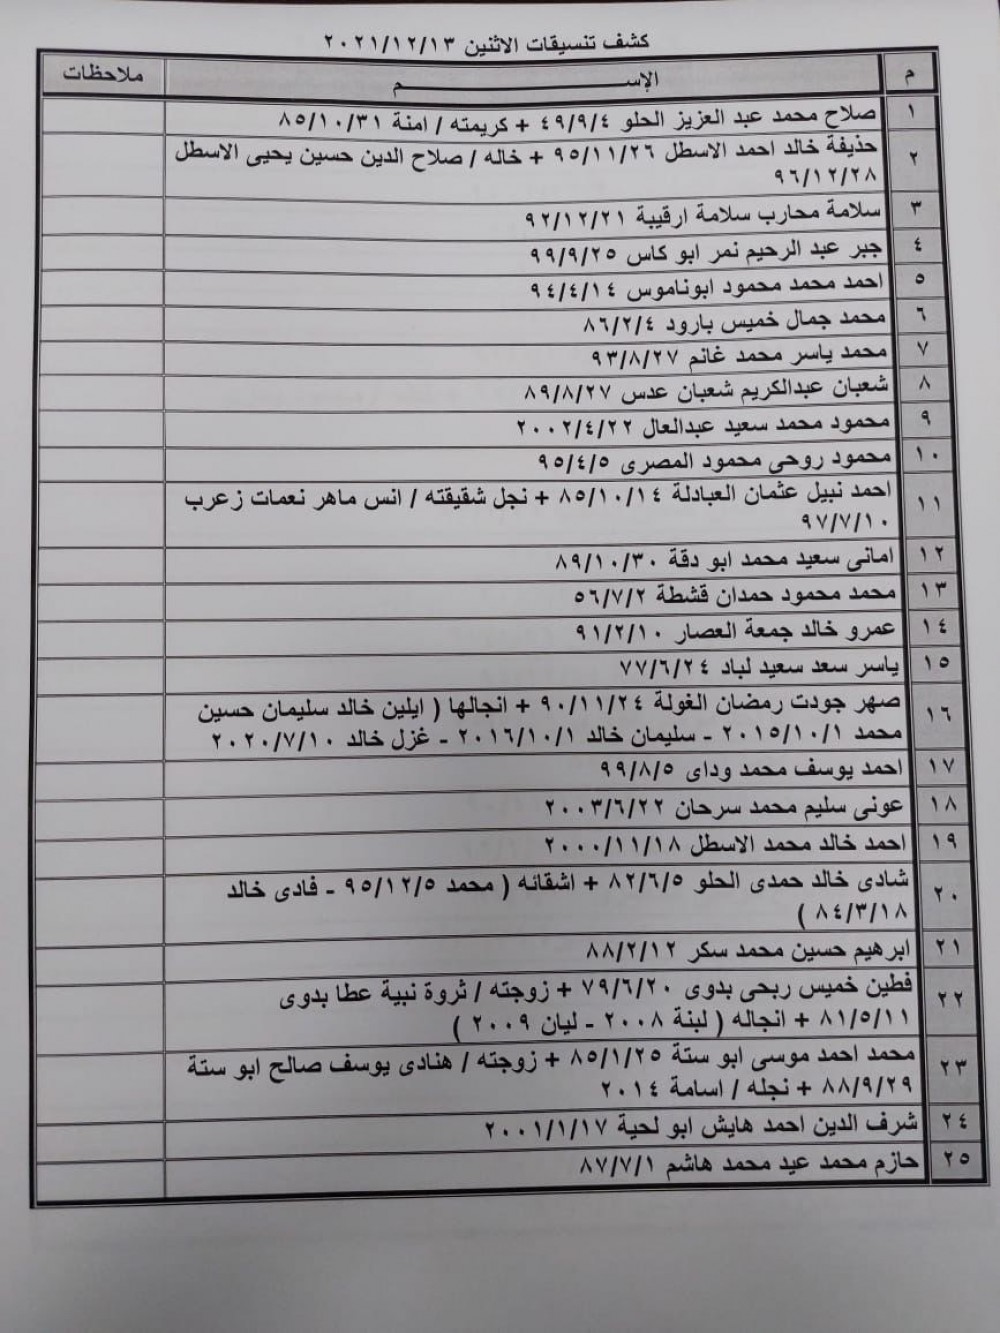 كشف تنسيقات الاثنين ٢٠٢١/١٢/١٣
م الإســـــــــم ملاحظات
١ صلاح محمد عبد العزيز الحلو ٤٩/٩/٤ + كريمته / امنة ٨٥/١٠/٣١
٢ حذيفة خالد احمد الاسطل ٩٥/١١/٢٦ + خاله / صلاح الدين حسين يحيى الاسطل
٩٦/١٢/٢٨
٣ سلامة محارب سلامة ارقيبة ٩٢/١٢/٢١
٤ جبر عبد الرحيم نمر ابو كاس ٩٩/٩/٢٥
٥ احمد محمد محمود ابوناموس ٩٤/٤/١٤
٦ محمد جمال خميس بارود ٨٦/٢/٤
٧ محمد ياسر محمد غانم ٩٣/٨/٢٧
٨ شعبان عبدالكريم شعبان عدس ٨٩/٨/٢٧
٩ محمود محمد سعيد عبدالعال ٢٠٠٢/٤/٢٢
١٠ محمود روحى محمود المصرى ٩٥/٤/٥
١١ احمد نبيل عثمان العبادلة ٨٥/١٠/١٤ + نجل شقيقته / انس ماهر نعمات زعرب
٩٧/٧/١٠
١٢ امانى سعيد محمد ابو دقة ٨٩/١٠/٣٠
١٣ محمد محمود حمدان قشطة ٥٦/٧/٢
١٤ عمرو خالد جمعة العصار ٩١/٢/١٠
١٥ ياسر سعد سعيد لباد ٧٧/٦/٢٤
١٦ صهر جودت رمضان الغولة ٩٠/١١/٢٤ + انجالها ( ايلين خالد سليمان حسين
محمد ٢٠١٥/١٠/١ - سليمان خالد ٢٠١٦/١٠/١ - غزل خالد ٢٠٢٠/٧/١٠
١٧ احمد يوسف محمد وداى ٩٩/٨/٥
١٨ عونى سليم محمد سرحان ٢٠٠٣/٦/٢٢
١٩ احمد خالد محمد الاسطل ٢٠٠٠/١١/١٨
٢٠ شادى خالد حمدى الحلو ٨٢/٦/٥ + اشقائه ( محمد ٩٥/١٢/٥ - فادى خالد
٨٤/٣/١٨ )
٢١ ابرهيم حسين محمد سكر ٨٨/٢/١٢
٢٢ فطين خميس ربحى بدوى ٧٩/٦/٢٠ + زوجته / ثروة نبية عطا بدوى
٨١/٥/١١ + انجاله ( لبنة ٢٠٠٨ - ليان ٢٠٠٩ )
٢٣ محمد احمد موسى ابو ستة ٨٥/١/٢٥ + زوجته / هنادى يوسف صالح ابو ستة
٨٨/٩/٢٩ + نجله / اسامة ٢٠١٤
٢٤ شرف الدين احمد هايش ابو لحية ٢٠٠١/١/١٧
٢٥ حازم محمد عيد محمد هاشم ٨٧/٧/١